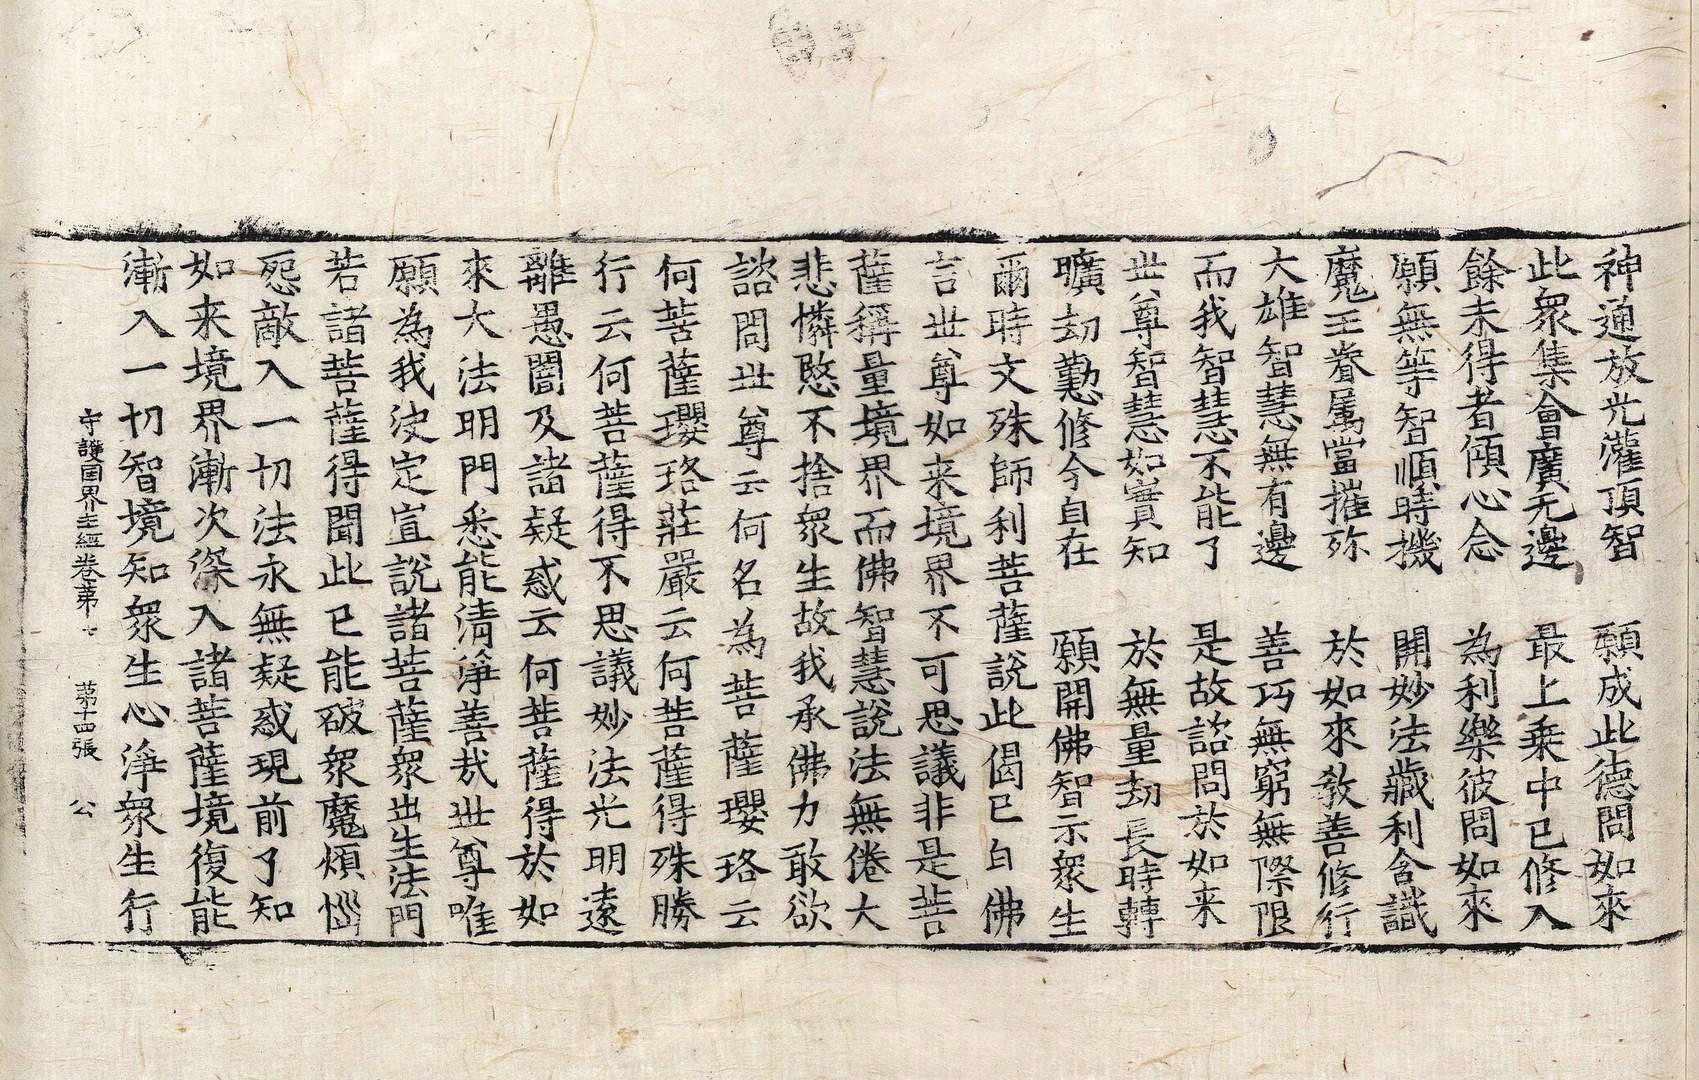 神通放光灌頂智　願成此德問如來
此衆集會廣无邊　最上乗中已修入
餘未得者傾心念　為利樂彼問如來
願無等智順時機　開妙法藏利含識
魔王眷属當摧殄　於如來教善修行
大雄智慧無有邊　善巧無窮無際限
而我智慧不能了　是故諮問於如来
世尊智慧如實知　於無量劫長時轉
曠劫勤修今自在　願開佛智示衆生
爾時文殊師利菩薩說此偈已白佛
言世尊如来境界不可思議非是菩
薩稱量境界而佛智慧說法無倦大
悲憐愍不捨衆生故我承佛力敢欲
諮問世尊云何名為菩薩瓔珞云
何菩薩瓔珞莊嚴云何菩薩得殊勝
行云何菩薩得不思議妙法光明遠
離愚闇及諸疑惑云何菩薩得於如
來大法明門悉能清淨善哉世尊唯
願為我決定宣說諸菩薩衆出生法門
若諸菩薩得聞此已能破衆魔煩惱
怨敵入一切法永無疑惑現前了知
如来境界漸次深入諸菩薩境復能
漸入一切智境知衆生心淨衆生行
守護國界主經卷第七　第十四張　公